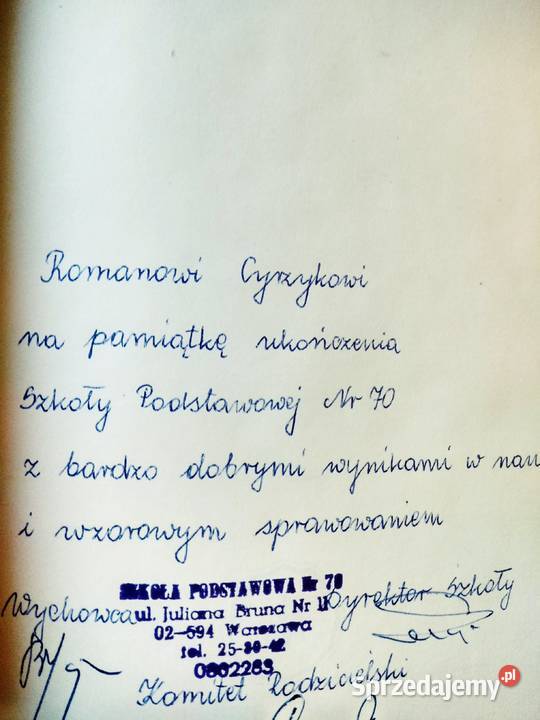 Romanowi Cyrzykowi
na pamiątkę ukończenia
Szkoły Podstawowej Nr 70
z bardzo dobrymi wynikami w nau
i wzorowym sprawowaniem
SZKOŁA PODSTAWOWA Nr 70
Wychowca ul. Juliana Bruna Nr 11 Dyrektor Szkoły
02-594 Warszawa
tel. 25-30-42
0802283
Komitet Rodzicielski
Sprzedajemy.pl